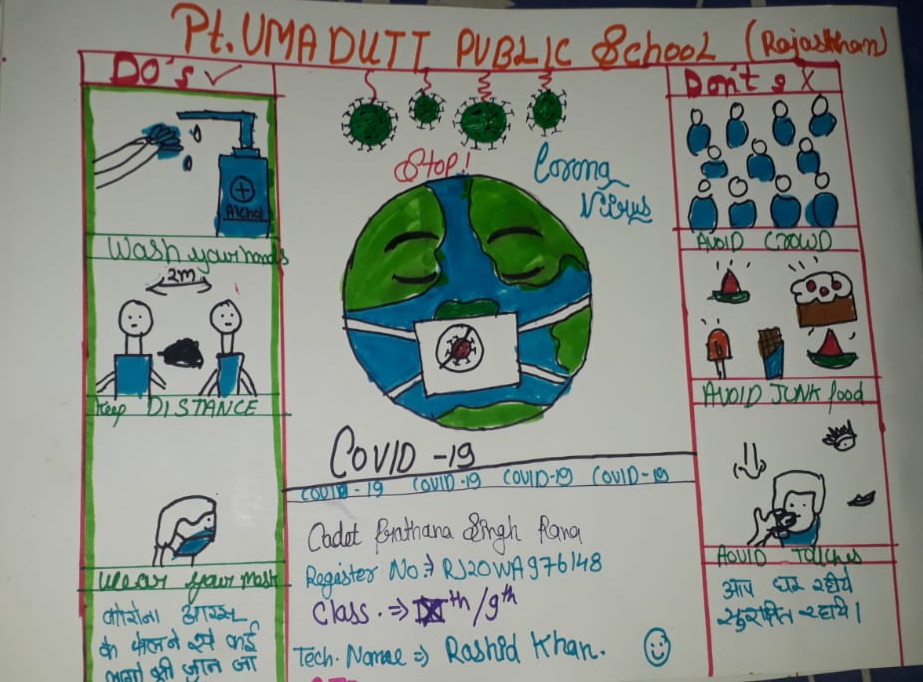 Pt. UMA DUTT PUBLIC School (Rajasthan)
DO's ✓
Alchol
Wash your hands
2m
Keep DISTANCE
Wear your mask
कोरोना
के फैलने से कई
की जान जा
Stop!
Corona
Virus
COVID -19
COVID - 19 COVID -19 COVID -19 COVID -19
Cadet Prathana Singh Rana
Register No.⇒ RJ20WA976148
Class.⇒ IXth/9th
Tech. Name ⇒ Rashid Khan.
Don't s X
AVOID CROWD
AVOID JUNK food
AOUID Touches
आप घर रहीये
सुरक्षित रहीये।